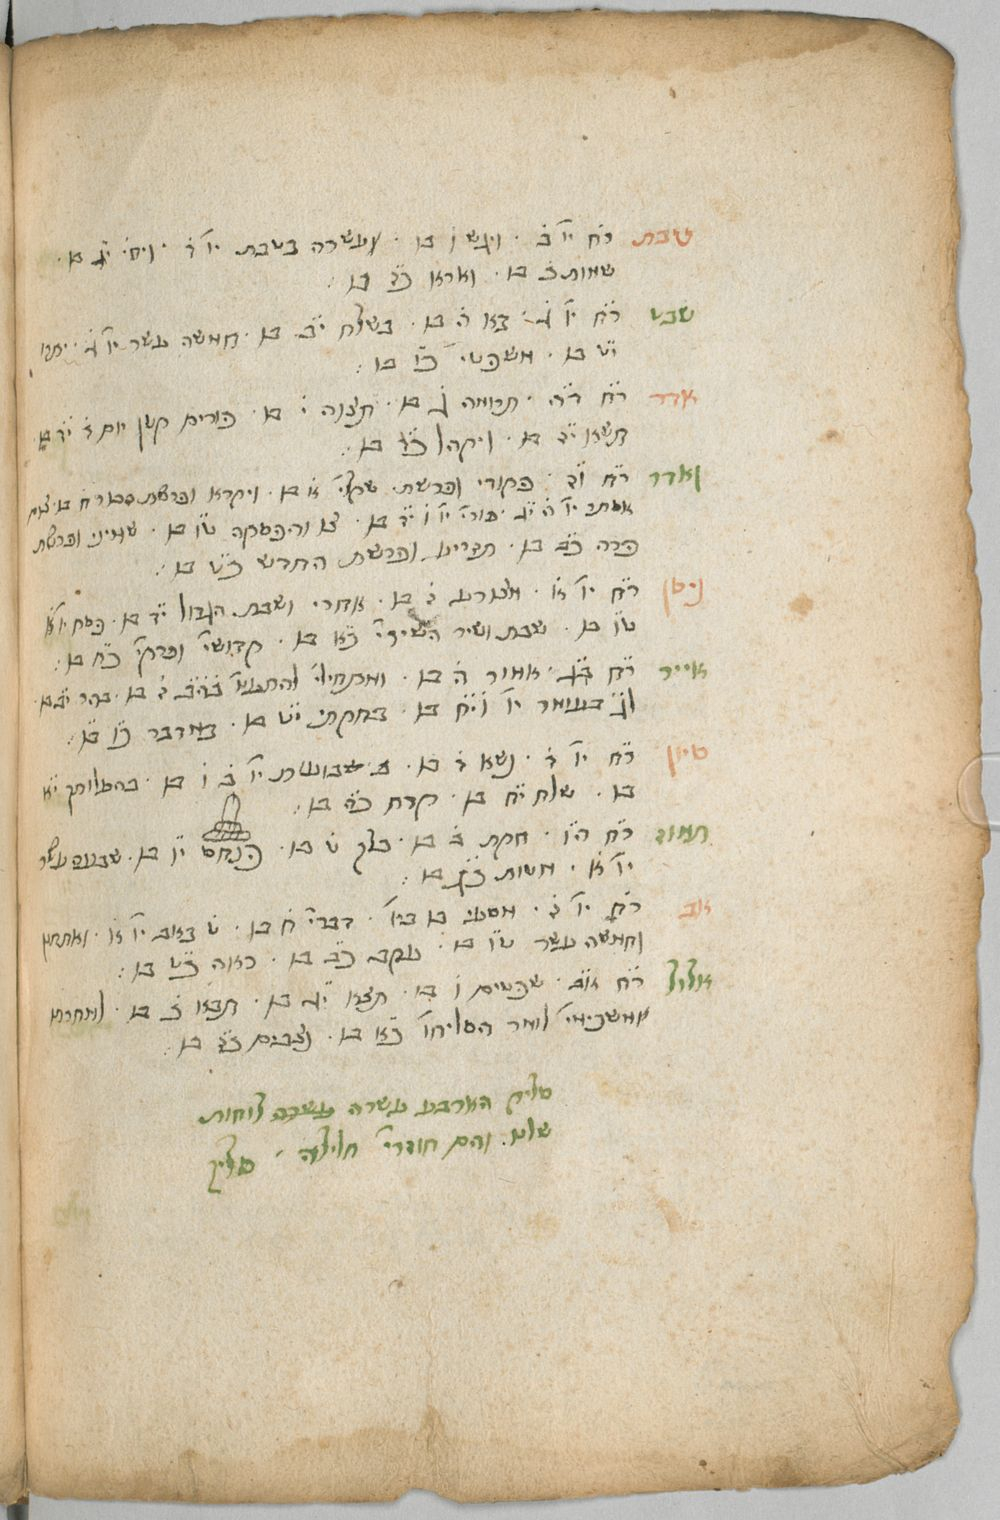 טבת רׄחׄ יו׳ בׄ · ויגש ו בו · עשרה בטבת יו׳ ג · ויחי יׄגׄ בו ·
שמות כׄ בו · וארא כׄזׄ בו :
שבט רׄחׄ יו׳ גׄ · בא הׄ בו · בשלח יׄבׄ בו · חמשה עשר יו׳ גׄ · יתרו
יׄטׄ בו · משפטי׳ כׄוׄ בו :
אדר רׄחׄ דׄהׄ · תרומה גׄ בו · תצוה יׄ בו · פורים קטן יום דׄ יׄדׄ בו ·
תשא יׄזׄ בו · ויקהל כׄדׄ בו :
ואדר רׄחׄ וׄזׄ · פקודי ופרשת שקלי׳ אׄ בו · ויקרא ופרשת זכור חׄ בו · צום
אסתר יו׳ הׄ יׄגׄ · פורי׳ יו׳ וׄ יׄדׄ בו · צו והפסקה טׄוׄ בו · שמיני ופרשת
פרה כׄבׄ בו · תזריע ופרשת החדש כׄטׄ בו :
ניסן רׄחׄ יו׳ אׄ · מצורע זׄ בו · אחרי ושבת הגדול יׄדׄ בו · פסח יו׳ אׄ
טׄוׄ בו · שבת ושיר השירי׳ כׄאׄ בו · קדושי׳ ופרקי׳ כׄחׄ בו :
אייר רׄחׄ בׄגׄ · אמור הׄ בו · ומתחילי׳ להתענו׳ בׄהׄבׄ זׄ בו · בהר יׄבׄ בו ·
לׄגׄ בעומר יו׳ וׄ יׄחׄ בו · בחקתי יׄטׄ בו · במדבר כׄוׄ בו :
סיון רׄחׄ יו׳ גׄ · נשא הׄ בו · שבועות יו׳ בׄ וׄ בו · בהעלותך יׄאׄ
בו · שלח יׄחׄ בו · קרח כׄהׄ בו :
תמוז רׄחׄ הׄוׄ · חקת בׄ בו · בלק טׄ בו · פנחס יׄוׄ בו · שבעה עשר
יו׳ אׄ · מטות כׄגׄ בו :
אב רׄחׄ יו׳ זׄ · מסעי בו ביו׳ · דברי׳ חׄ בו · ט באב יו׳ אׄ · ואתחנן
וחמשה עשר טׄוׄ בו · עקב כׄבׄ בו · ראה כׄטׄ בו :
אלול רׄחׄ אׄבׄ · שפטים וׄ בו · תצא יׄגׄ בו · תבא כׄ בו · למחרת
משכימי׳ לומר הסליחו׳ כׄאׄ בו · נצבים כׄזׄ בו :
סליק הארבע עשרה לוחות
שלו · והם חוזרי׳ חלילה · סליק